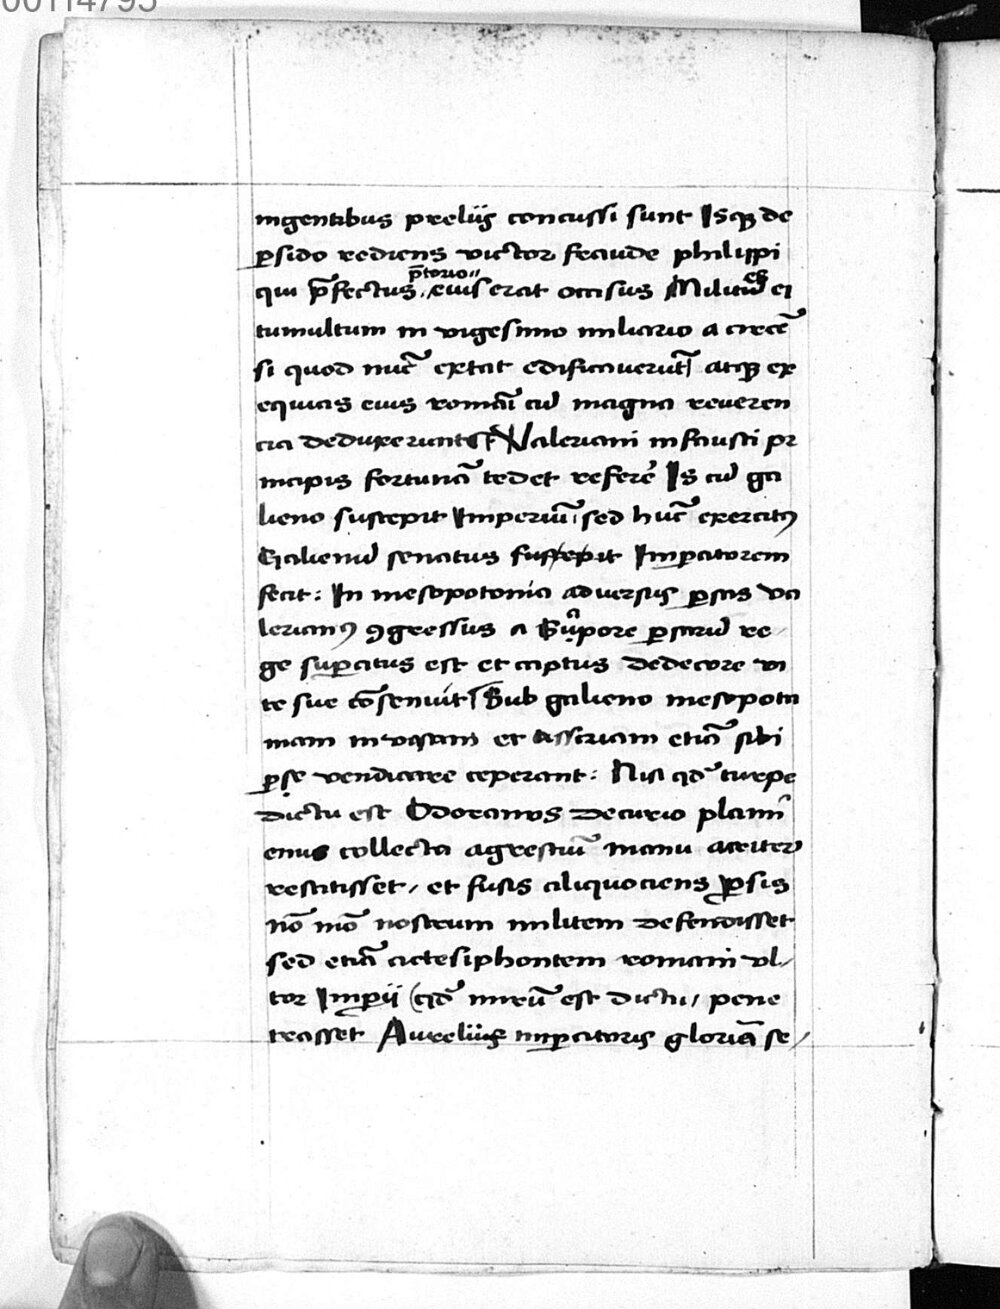 00114795
ingentibus preliis concussi sunt Isqꝫ de
ꝑsido rediens victor fraude philippi
qui p̄fectus p̄torio eius erat occisus Militeſ ei
tumultum in vigesimo miliario a circē
si quod nūc extat edificauerūt atqꝫ ex
equias eius romāi cū magna reueren
cia deduxerunt Valeriani infausti pr
incipis fortunā tedet referē Is cū ga
lieno suscepit Imperiū sed hūc exercitꝰ
Galienū senatus suscepit Imꝑatorem
fecit: In mesopotonia aduersus ꝑsas va
lerianꝰ ꝯgressus a Sapore ꝑsarū re
ge suꝑatus est et captus dedecore vi
te sue cōsenuit Sub galieno mesopota
miam inuasam et assiriam etiā sibi
ꝑse vendicare ceperant: Nisi qd̄ turpe
dictu est Odoranus decurio plami
enus collecta agrestiū manu acriter
restitisset / et fusis aliquociens ꝑsis
nō mō nostrum militem defendisset
sed etiā actesiphontem romani vl
tor Imꝑii (qd̄ mirū est dictu / pene
trasset Aureliis imꝑatoris gloriā se /